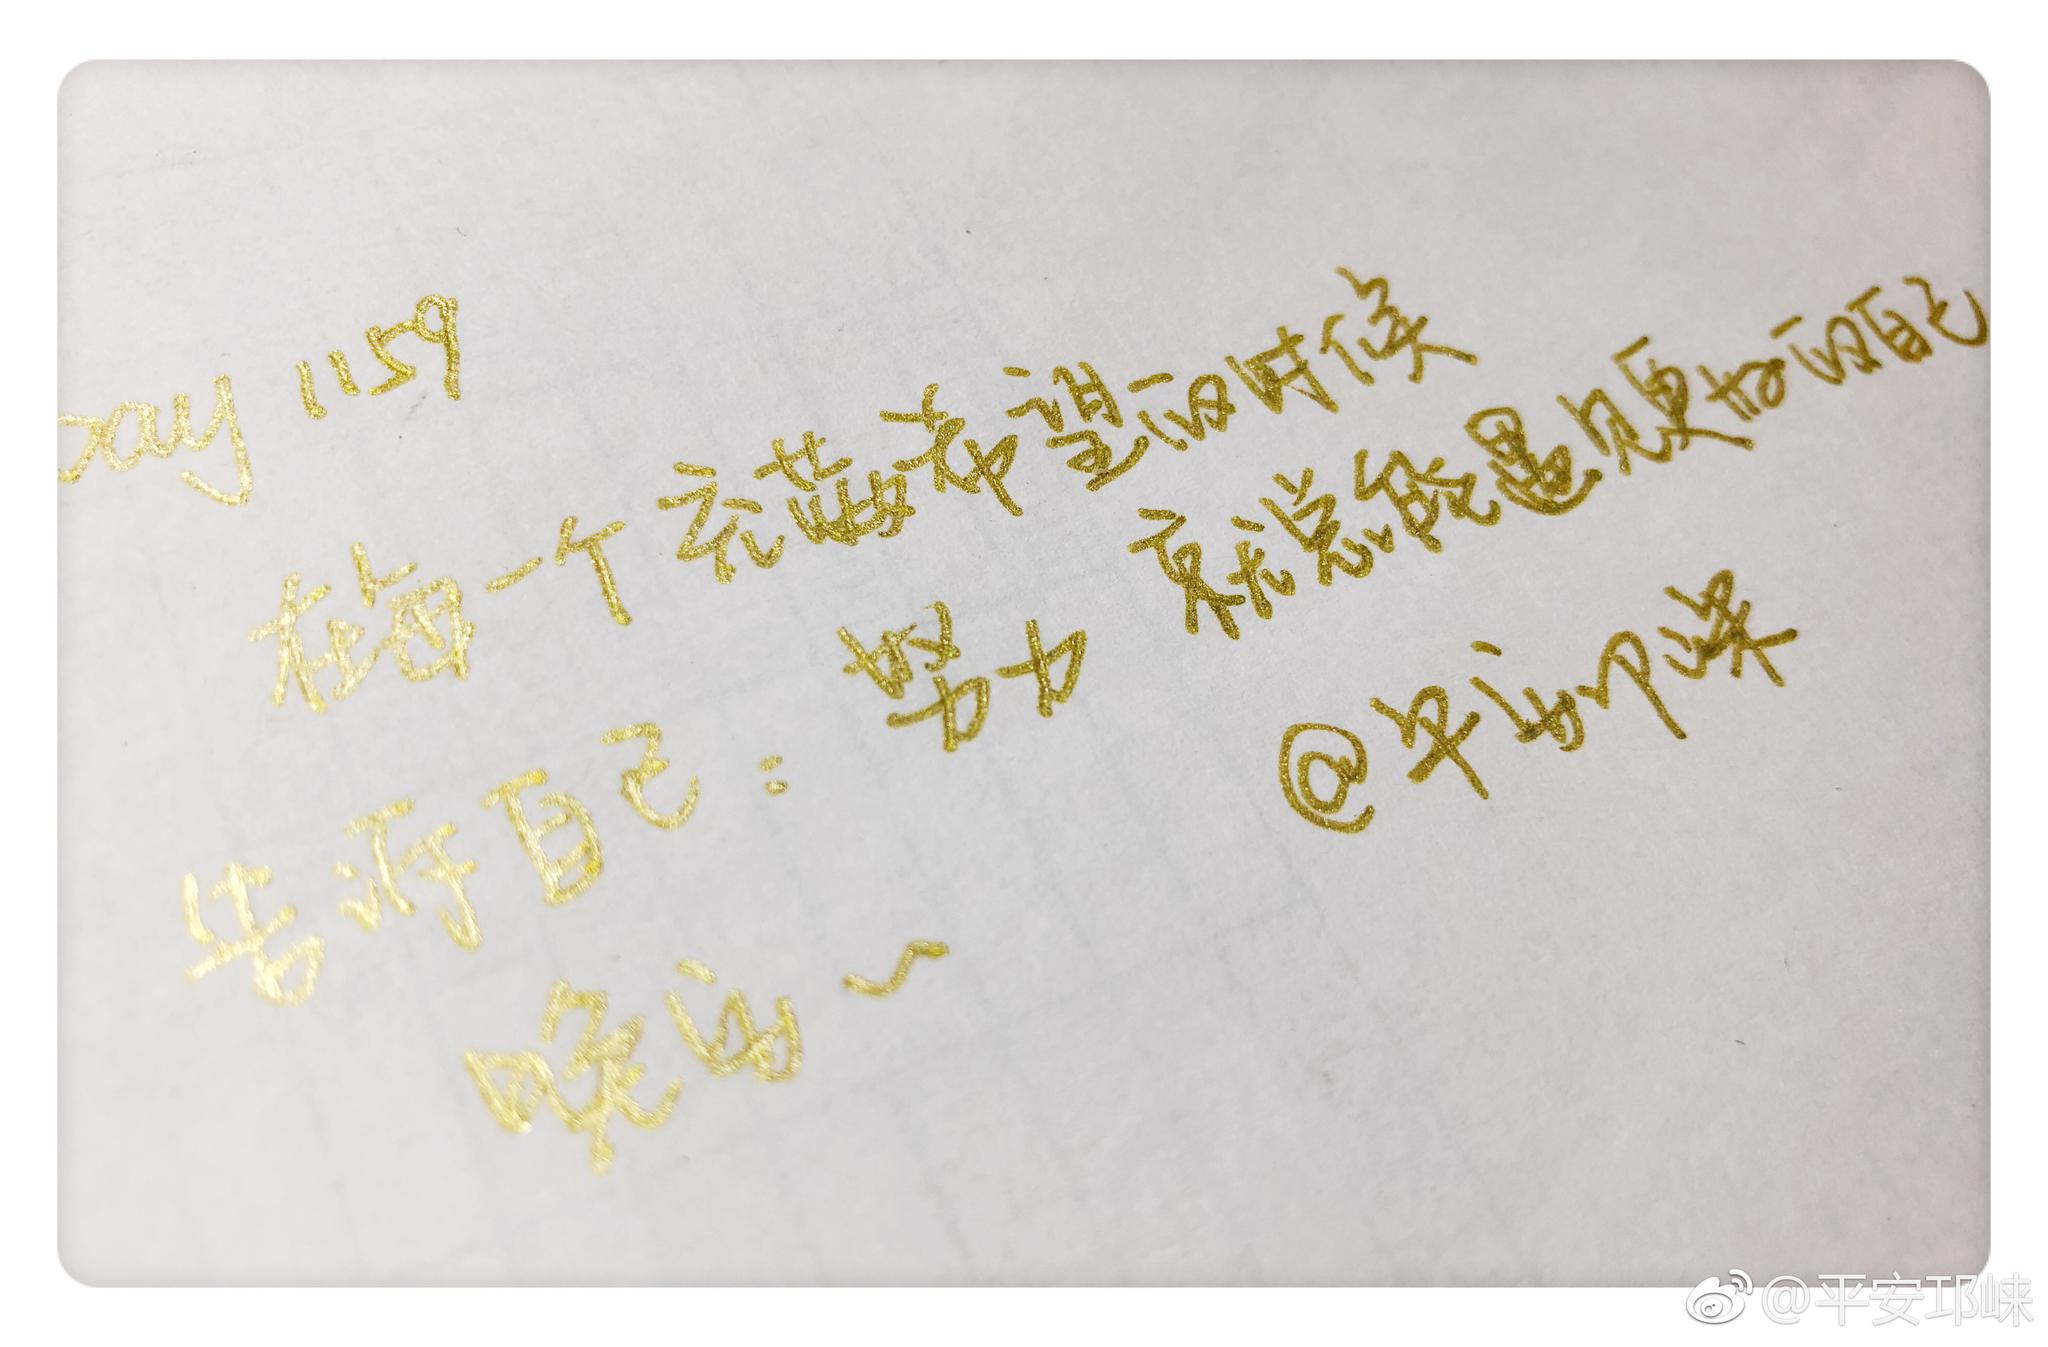 Day 1159
在每一个充满希望的时候
告诉自己：努力 就总能遇见更好的自己
晚安~ @平安邛崃
@平安邛崃